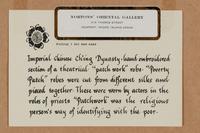 NORTONS' ORIENTAL GALLERY
Imperial Chinese Ching Dynasty - hand embroidered
section of a theatrical "patch work" robe. "Poverty
Patch" robes were cut from different silks and
pieced together. These were worn by actors in the
roles of priests. "Patchwork" was the religious
person's way of identifying with the poor.